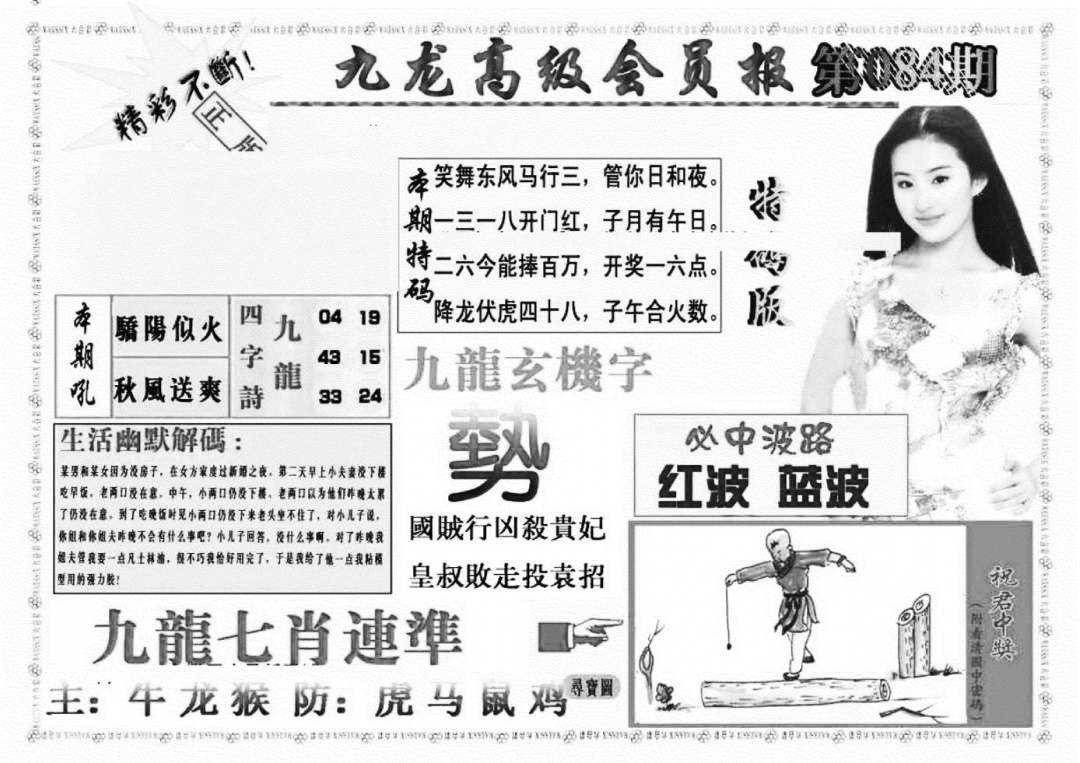 精彩不斷!
正版
九龙高级会员报
第084期
本期特码
笑舞东风马行三，管你日和夜。
一三一八开门红，子月有午日。
二六今能捧百万，开奖一六点。
降龙伏虎四十八，子午合火数。
特码版
本期吼
驕陽似火
秋風送爽
四字詩
九龍
04 19
43 15
33 24
九龍玄機字
勢
國賊行凶殺貴妃
皇叔敗走投袁招
生活幽默解碼：
某男和某女因为没房子，在女方家度过新婚之夜，第二天早上小夫妻没下楼
吃早饭，老两口没在意，中午，小两口仍没下楼，老两口以为他们昨晚太累
了仍没在意，到了吃晚饭时见小两口仍没下来老头坐不住了，对小儿子说，
你姐和你姐夫昨晚不会有什么事吧？小儿子回答，没什么事啊，对了昨晚我
姐夫管我要一点凡士林油，很不巧我恰好用完了，于是我给了他一点我粘模
型用的强力胶!
必中波路
红波 蓝波
九龍七肖連準
主：牛龙猴 防：虎马鼠鸡
尋寶圖
祝君中奖
（附看清圖中密碼）